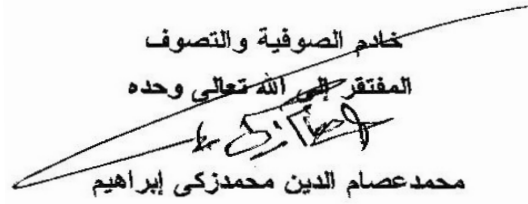 خادم الصوفية والتصوف
المفتقر إلى الله تعالى وحده
محمدعصام الدين محمدزكى إبراهيم